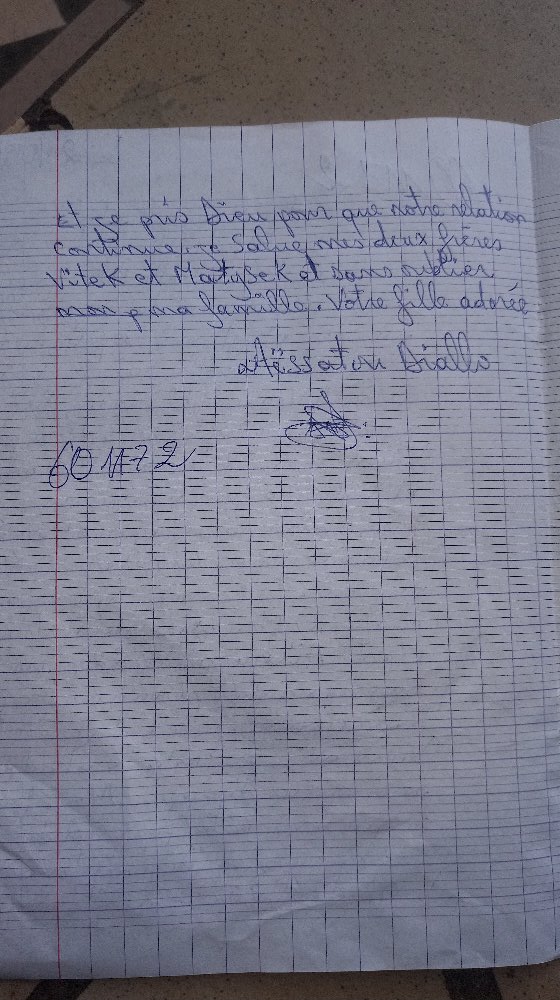 Et je pris Dieu pour que notre relation
continue. je salue mes deux frères
Vitek et Matysek et sans oublier
ma famille. Votre fille adorée
Aïssatou Diallo
601172